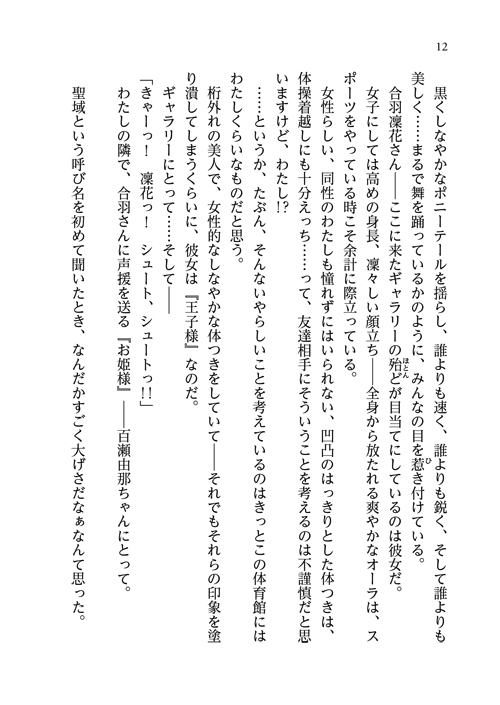 12
　黒くしなやかなポニーテールを揺らし、誰よりも速く、誰よりも鋭く、そして誰よりも
美しく……まるで舞を踊っているかのように、みんなの目を惹き付けている。
　合羽凜花さん――ここに来たギャラリーの殆どが目当てにしているのは彼女だ。
　女子にしては高めの身長、凜々しい顔立ち――全身から放たれる爽やかなオーラは、ス
ポーツをやっている時こそ余計に際立っている。
　女性らしい、同性のわたしも憧れずにはいられない、凹凸のはっきりとした体つきは、
体操着越しにも十分えっち……って、友達相手にそういうことを考えるのは不謹慎だと思
いますけど、わたし!?
　……というか、たぶん、そんないやらしいことを考えているのはきっとこの体育館には
わたしくらいなものだと思う。
　桁外れの美人で、女性的なしなやかな体つきをしていて――それでもそれらの印象を塗
り潰してしまうくらいに、彼女は『王子様』なのだ。
　ギャラリーにとって……そして――
「きゃーっ！　凜花っ！　シュート、シュートっ!!」
　わたしの隣で、合羽さんに声援を送る『お姫様』――百瀬由那ちゃんにとって。
　聖域という呼び名を初めて聞いたとき、なんだかすごく大げさだなぁなんて思った。